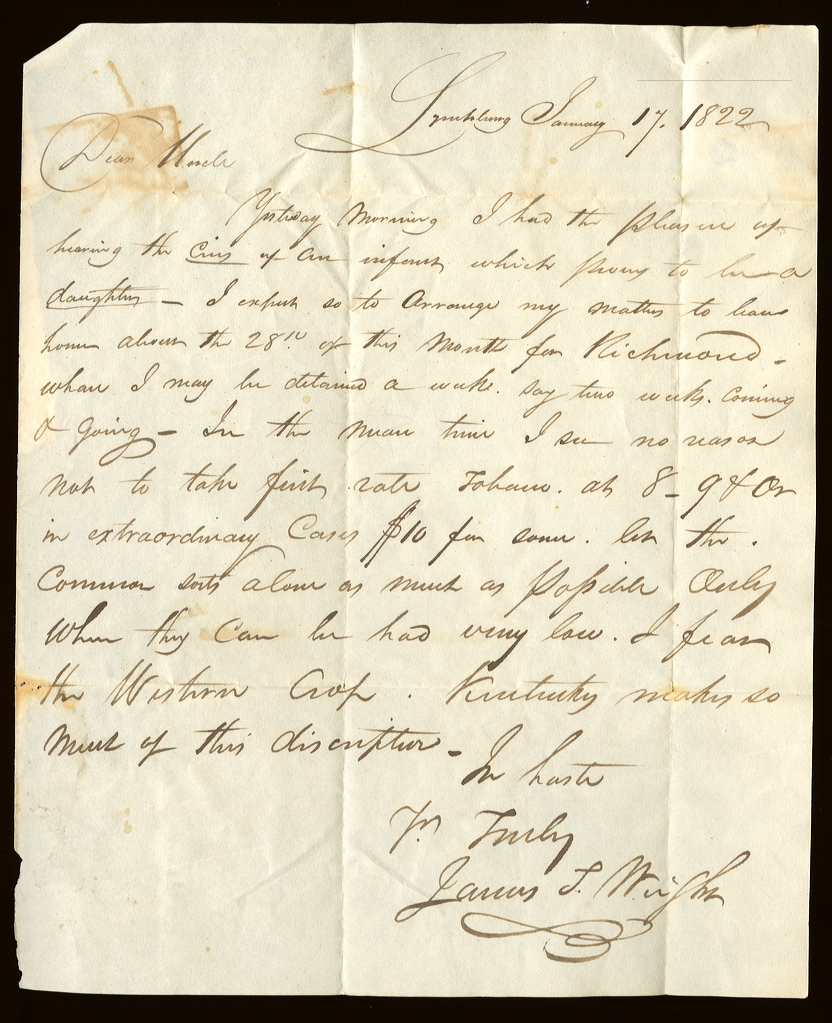 Lynchburg January 17. 1822
Dear Uncle
Yesterday Morning I had the pleasure of
hearing the cries of an infant which proves to be a
daughter – I expect so to arrange my matters to leave
home about the 28th of this Month for Richmond –
whare I may be detained a weeke. say two weeks. coming
& going – In the mean time I see no reason
not to take first rate Tobacco. at 8 – 9 & Or
in extraordinary Cases $10 for some. let the.
Common sorts alone as much as Possible Only
When they Can be had very low. I fear
the Western Crop. Kentucky makes so
much of this discription –
In haste
Yrs Truly
James S. Wright